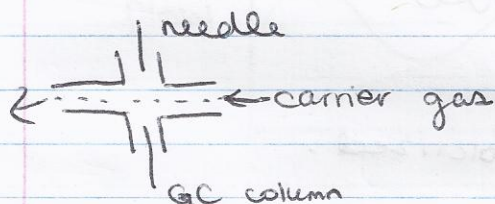 needle
carrier gas
GC column